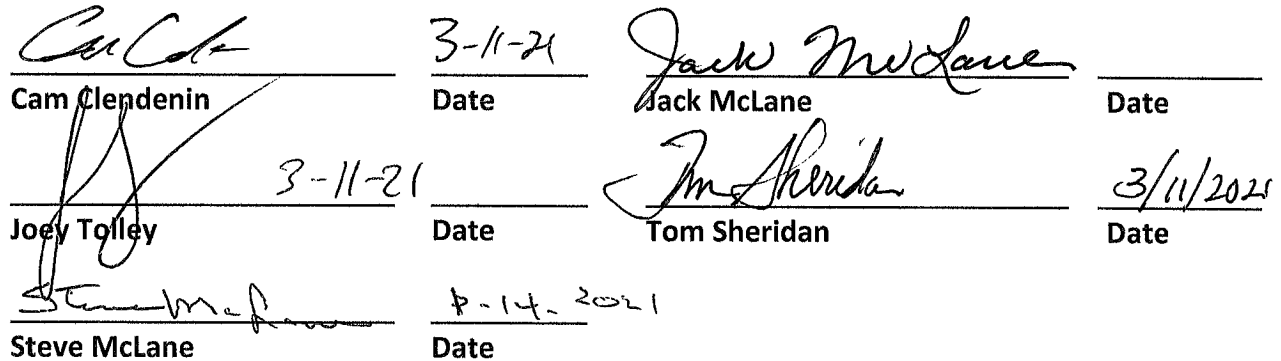 3-11-21 Jack McLane
Cam Clendenin Date Jack McLane Date
3-11-21 Tom Sheridan 3/11/2021
Joey Tolley Date Tom Sheridan Date
Steve McLane -14-2021
Steve McLane Date